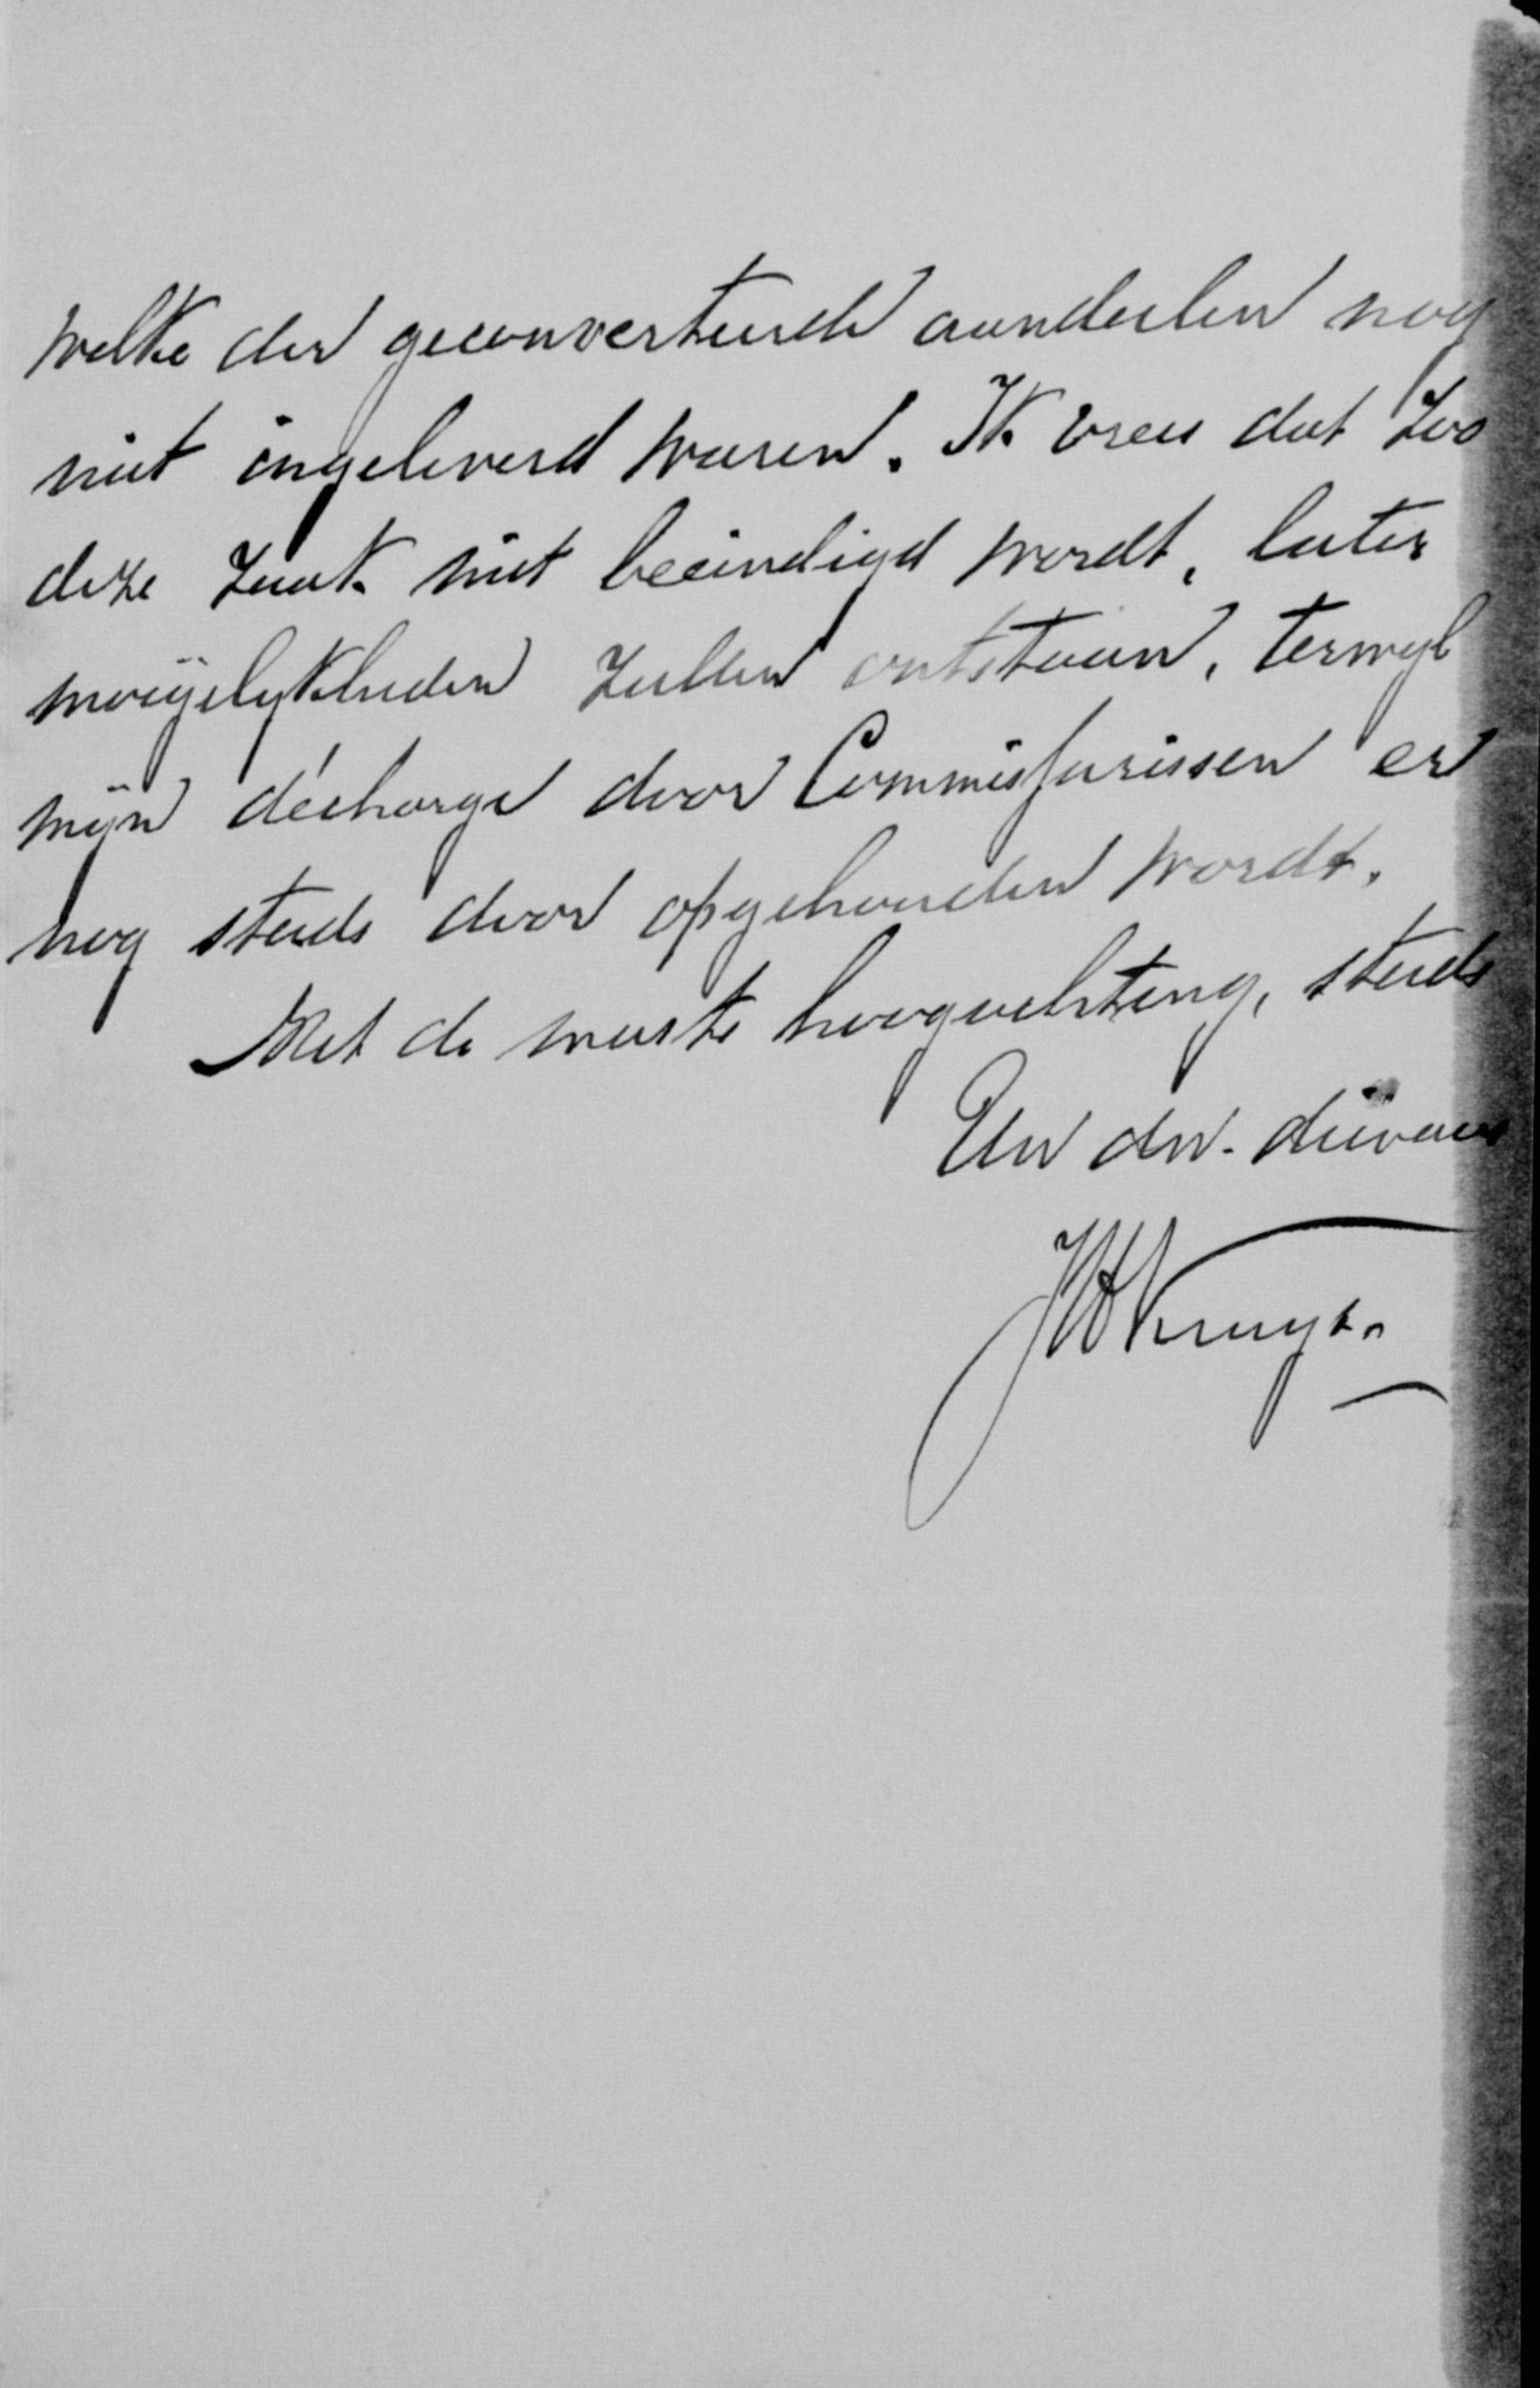 welke der geconverteerde aandeelen nog
niet ingeleverd waren. Ik vrees dat zoo
deze zaak niet beëindigd wordt, later
moeijelykheden zullen ontstaan, terwyl
mijn décharge door Commissarissen er
nog steeds door opgehouden wordt.
Met de meeste hoogachting, steeds
Uw dw. dienaar
JW Kruyt.